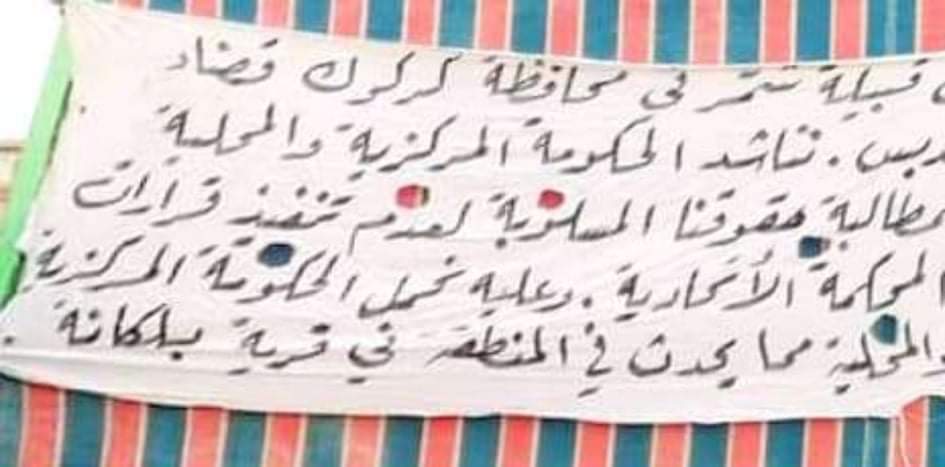 قبيلة شمر في محافظة كركوك قضاء
دبس. نناشد الحكومة المركزية والمحلية
مطالبة حقوقنا المسلوبة لعدم تنفيذ قرارات
المحكمة الأتحادية. وعليه نحمل الحكومة المركزية
والمحلية مما يحدث في المنطقة في قرية بلكانة.